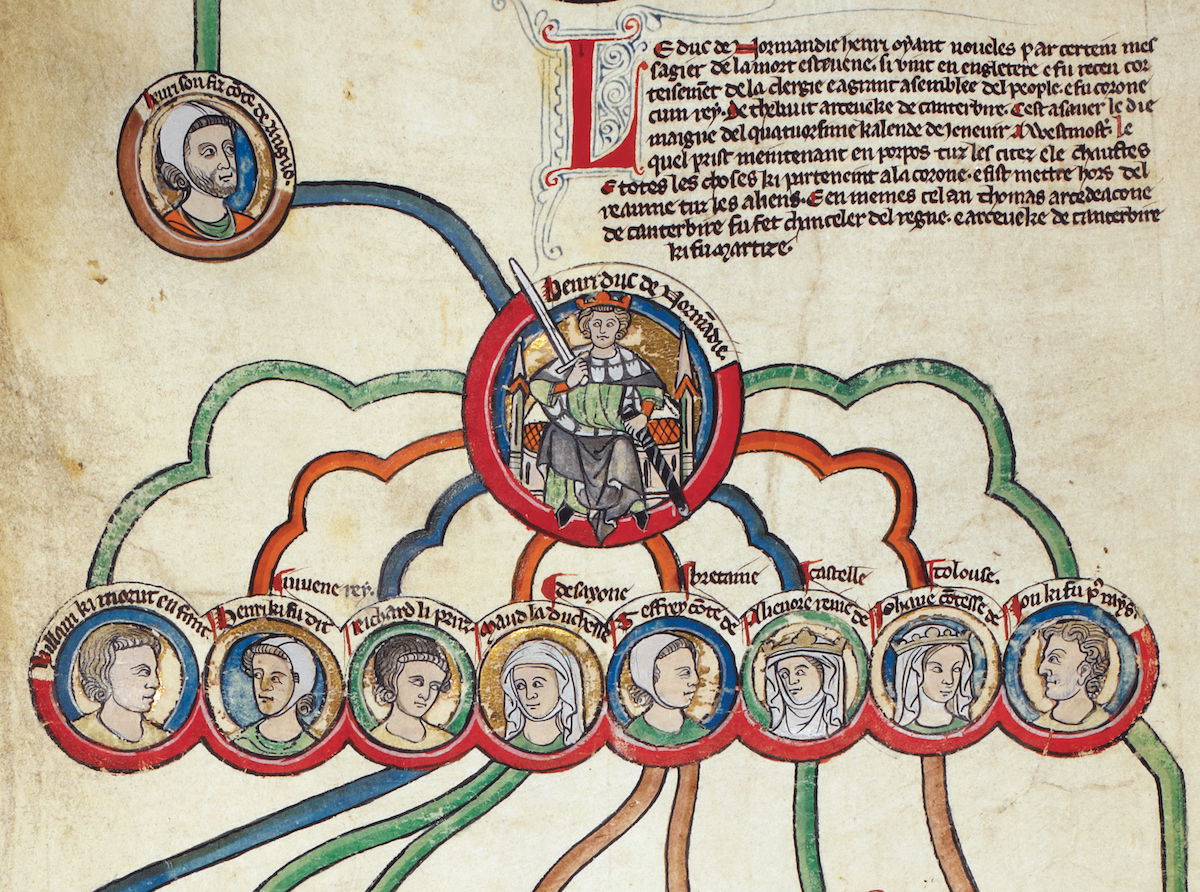 Henri son fiz cōte de Angio.
LE duc de Normandie henri oyant noueles par certein mes
sagier de la mort esteuene. si vint en engletere e fu receu cor
teisemēt de la clergie e a grant asemblee del people. e fu corone
cum rey. De thebaut arceueke de canterbire. Cest a sauer le die
maigne del quatuorsime kalende de Jeneuir A Westmost᷑. Le
quel prist meintenant en porpos tur les citez e le chausteſ
E totes les choses ki parteneint a la corone. e fist mettre hors del
reaume tur les aliens. E en memes cel an thomas arcedeacone
de canterbire fu fet chanceler del regne. e arceueke de canterbire
ki fu martire.
Henri duc de Normādie.
Willam ki morut enfant
Henri ki fu dit
iuuene rey.
Richard li prꝰ.
Maud la duchesse
de saxone
Geffrey cōte de
bretaine
Alienore reine de
castelle
Iohane cōtesse de
tolouse.
Ion ki fu pꝰ rays.